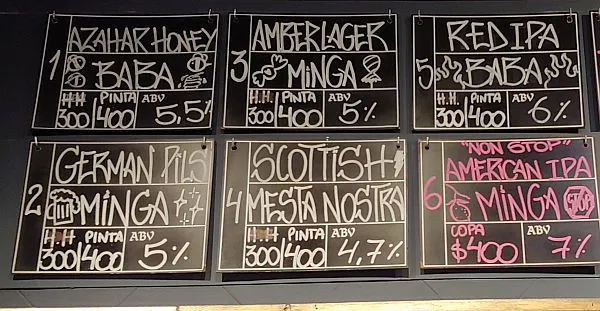 1
AZAHAR HONEY
BABA
H.H PINTA ABV
300/400 5,5%
3
AMBER LAGER
MINGA
H.H. PINTA ABV
300/400 5%
5
RED IPA
BABA
H.H. PINTA ABV
300/400 6%
2
GERMAN PILS
MINGA
H.H PINTA ABV
300/400 5%
4
SCOTTISH
MESTA NOSTRA
H.H PINTA ABV
300/400 4,7%
6
"NON STOP"
AMERICAN IPA
MINGA STOP
COPA ABV
$400 7%